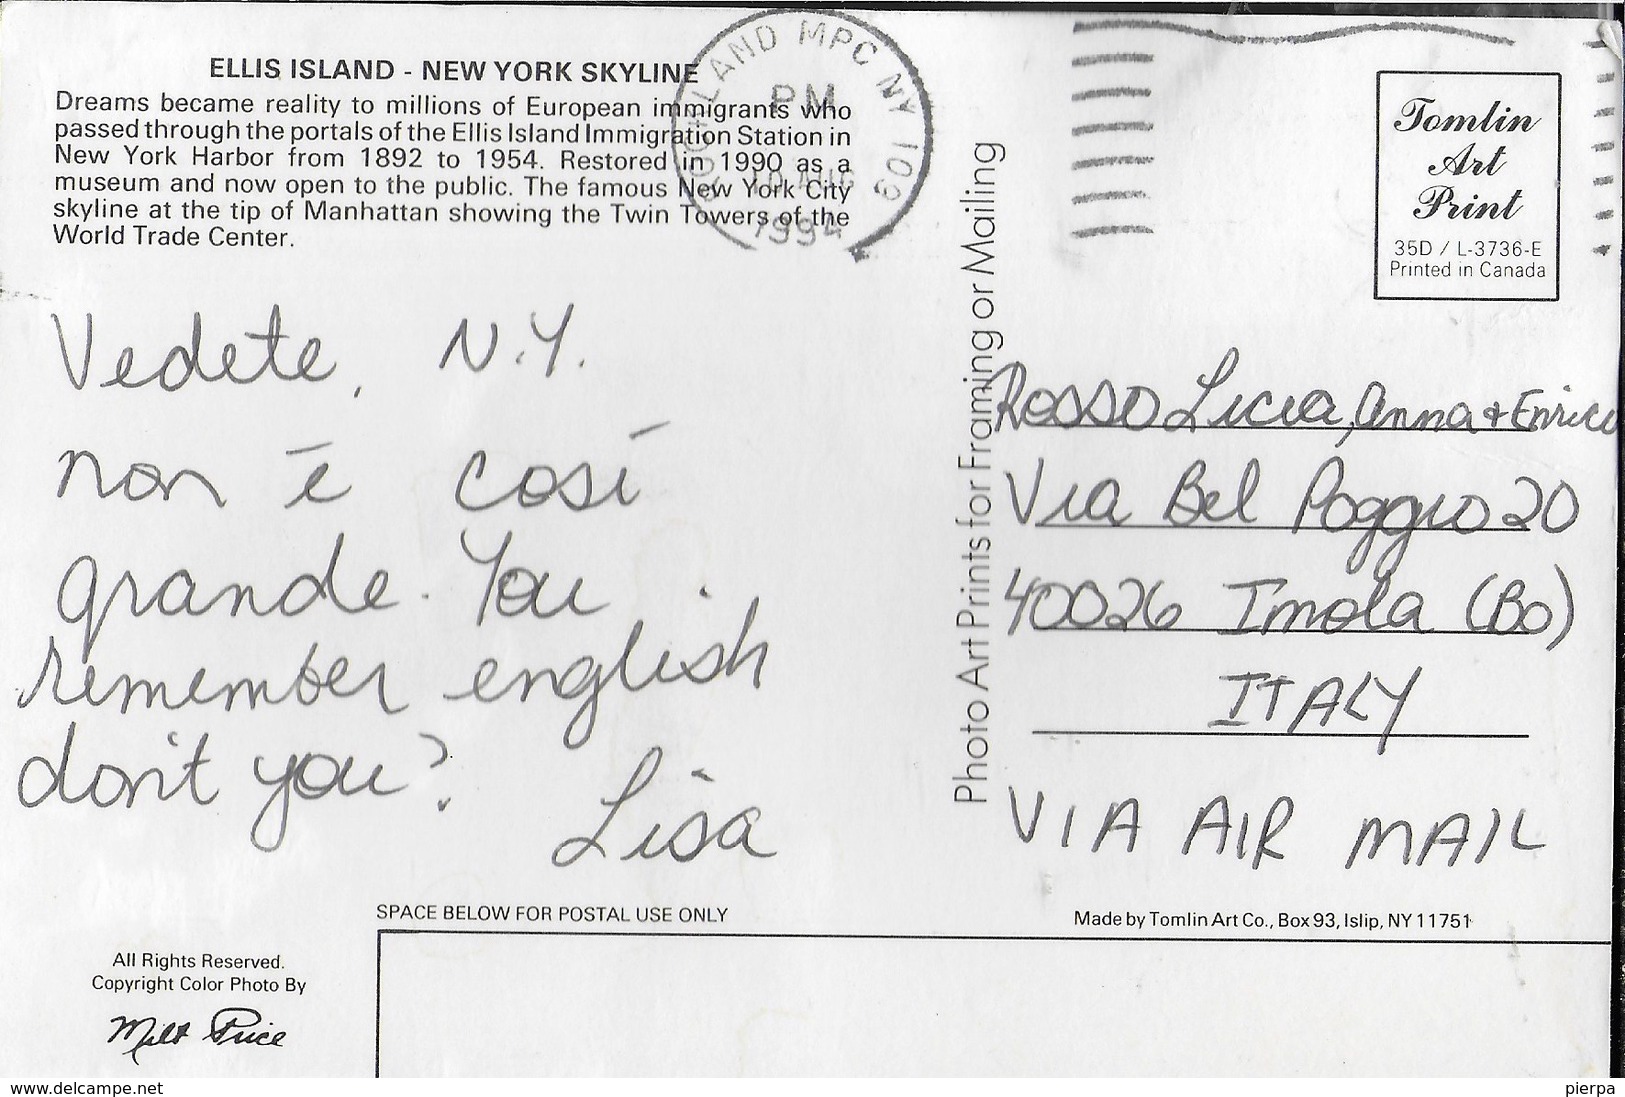 ELLIS ISLAND - NEW YORK SKYLINE
Dreams became reality to millions of European immigrants who
passed through the portals of the Ellis Island Immigration Station in
New York Harbor from 1892 to 1954. Restored in 1990 as a
museum and now open to the public. The famous New York City
skyline at the tip of Manhattan showing the Twin Towers of the
World Trade Center.
MPC NY 109
PM
1994
Tomlin
Art
Print
35D / L-3736-E
Printed in Canada
Vedete, N.Y.
non è così
grande. You
remember english
don't you?
Lisa
Photo Art Prints for Framing or Mailing
Rosso Licia, Anna & Enrico
Via Bel Poggio 20
40026 Imola (Bo)
ITALY
VIA AIR MAIL
SPACE BELOW FOR POSTAL USE ONLY
Made by Tomlin Art Co., Box 93, Islip, NY 11751
All Rights Reserved.
Copyright Color Photo By
Milt Price
www.delcampe.net
pierpa